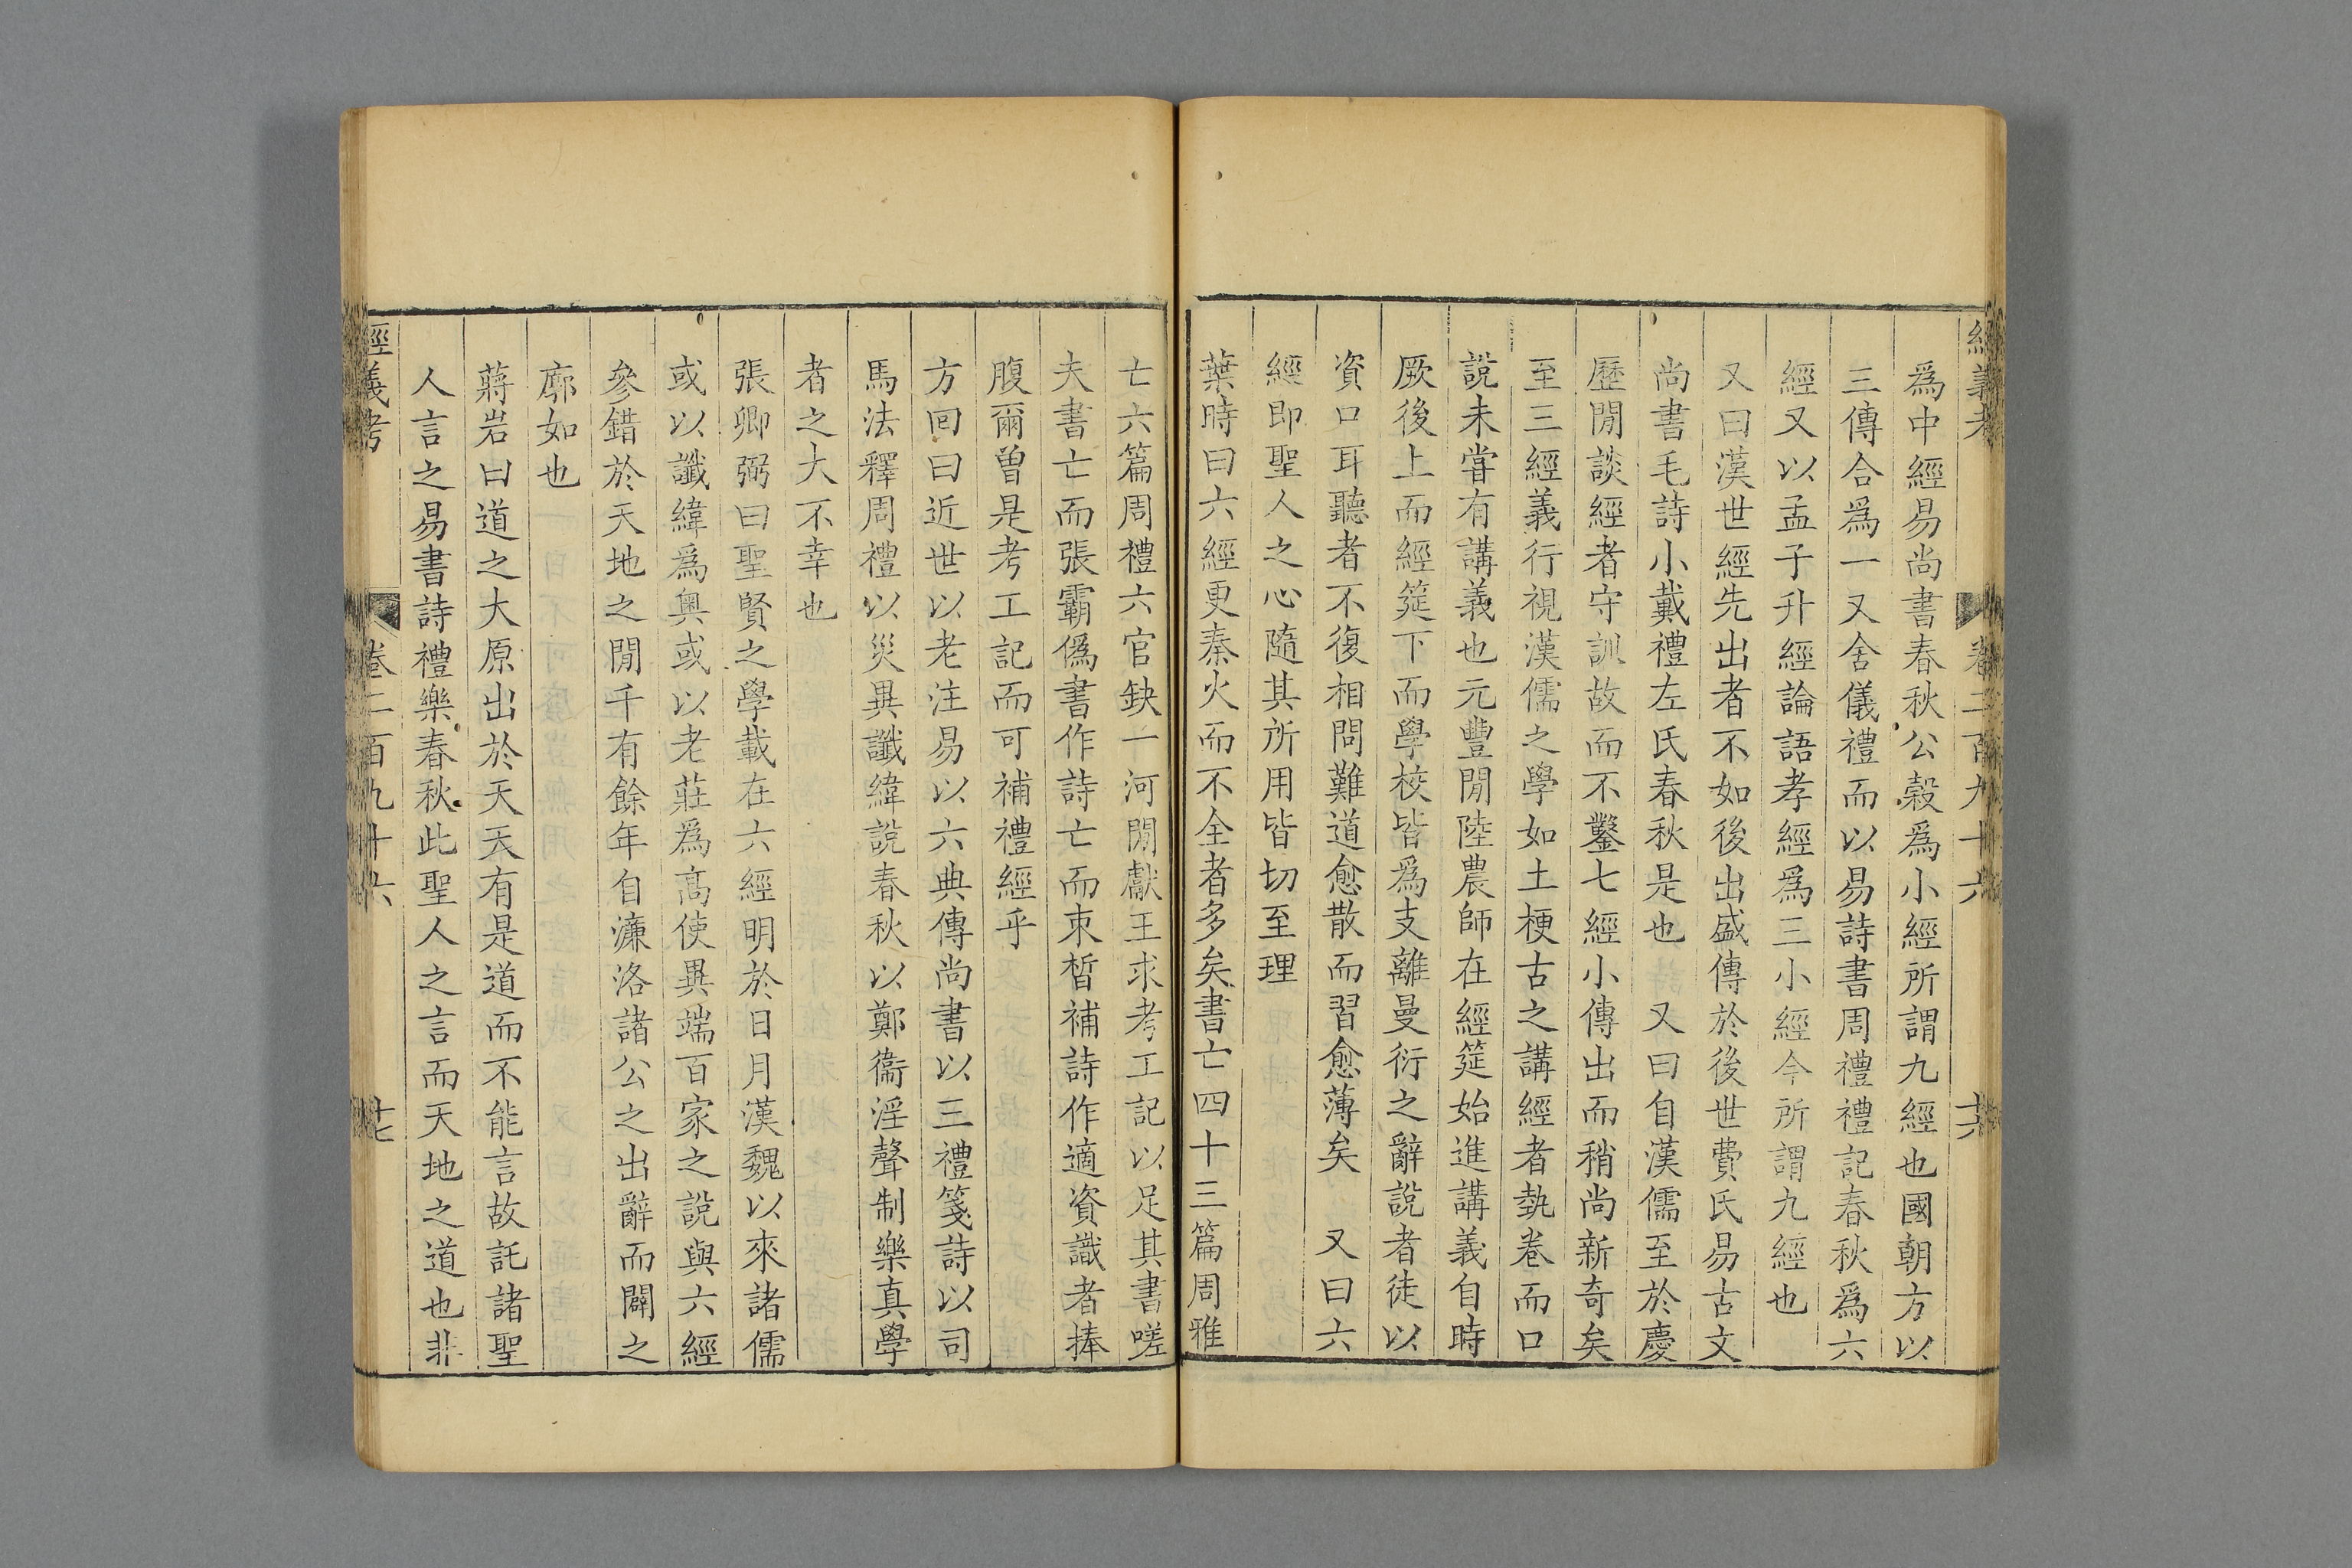 經義考 卷二百九十六 十六
爲中經易尚書春秋公榖爲小經所謂九經也國朝方以
三傳合爲一又舍儀禮而以易詩書周禮禮記春秋爲六
經又以孟子升經論語孝經爲三小經今所謂九經也
又曰漢世經先出者不如後出盛傳於後世費氏易古文
尚書毛詩小戴禮左氏春秋是也 又曰自漢儒至於慶
歷閒談經者守訓故而不鑿七經小傳出而稍尚新奇矣
至三經義行視漢儒之學如土梗古之講經者執卷而口
說未甞有講義也元豐閒陸農師在經筵始進講義自時
厥後上而經筵下而學校皆爲支離曼衍之辭說者徒以
資口耳聽者不復相問難道愈散而習愈薄矣 又曰六
經即聖人之心隨其所用皆切至理
葉時曰六經更秦火而不全者多矣書亡四十三篇周雅
亡六篇周禮六官缺一河閒獻王求考工記以足其書嗟
夫書亡而張霸僞書作詩亡而朿晳補詩作適資識者捧
腹爾曾是考工記而可補禮經乎
方回曰近世以老注易以六典傳尚書以三禮箋詩以司
馬法釋周禮以災異讖緯說春秋以鄭衞淫聲制樂真學
者之大不幸也
張卿弼曰聖賢之學載在六經明於日月漢魏以來諸儒
或以讖緯爲奧或以老莊爲高使異端百家之說與六經
參錯於天地之閒千有餘年自濂洛諸公之出辭而闢之
廓如也
蔣岩曰道之大原出於天天有是道而不能言故託諸聖
人言之易書詩禮樂春秋此聖人之言而天地之道也非
經義考 卷二百九十六 十七